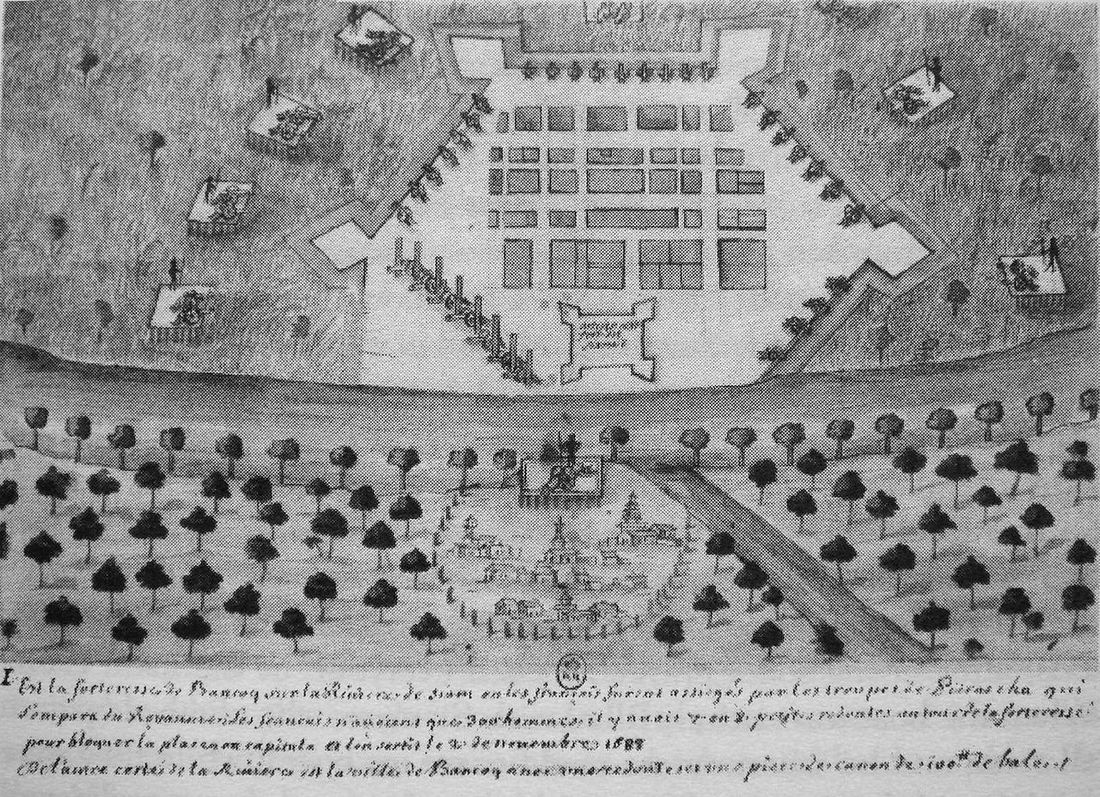 I. Est la forteresse de Bancoq sur la Riuiere de siam ou les francois furent assiegés par les troupes de Pitracha qui
s'empara du Royaume. Les francois n'auoient que 300 hommes. il y auoit petites redoutes autour de la forteresse
pour bloquer la place on capitula et l'on sortit le 2 de nouembre 1688
De l'autre costé de la Riuiere est la uille de Bancoq auec une redoute et une piece de canon de de bale